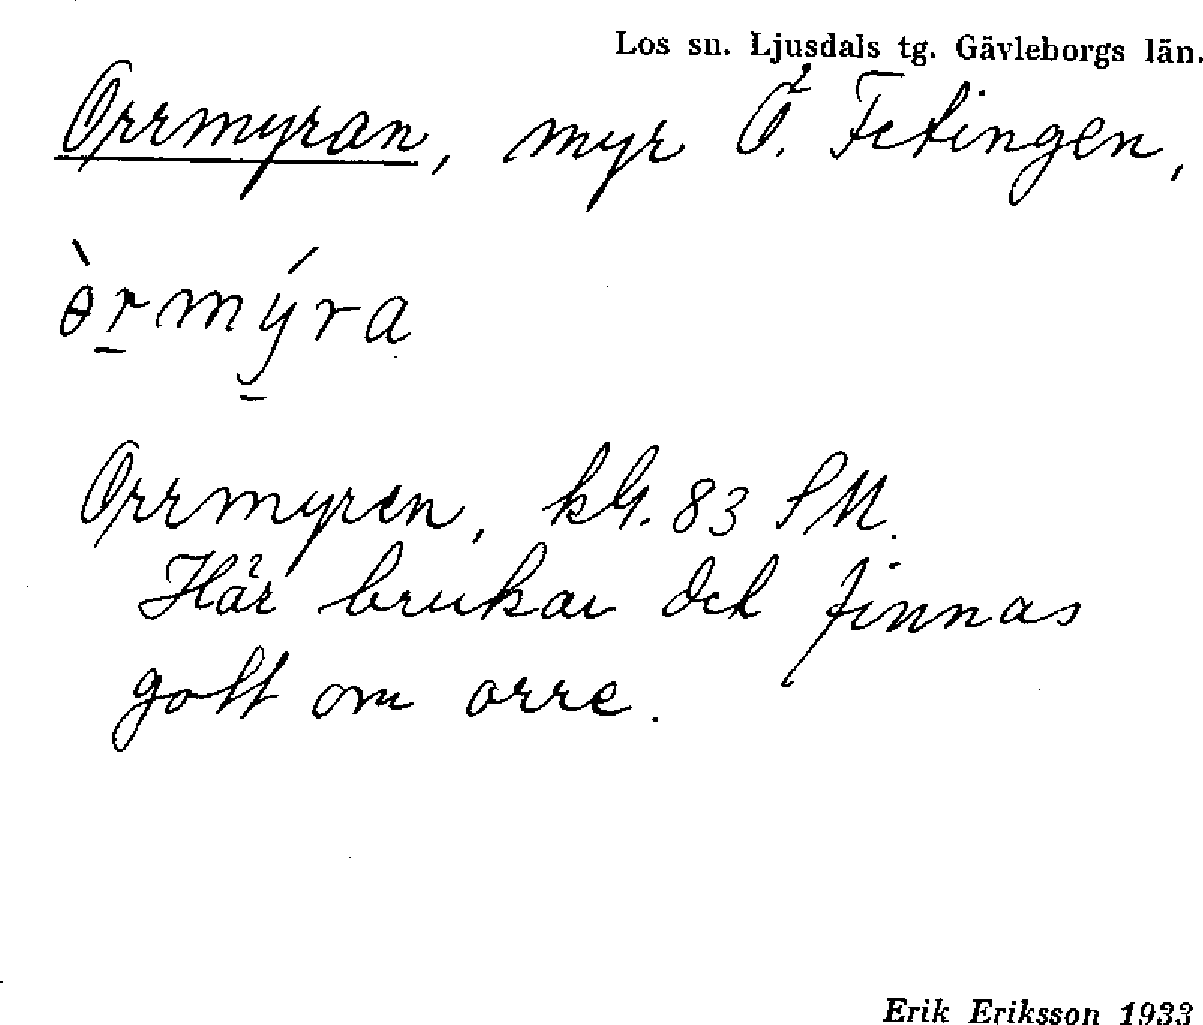 Los sn. Ljusdals tg. Gävleborgs län.
Orrmyran, myr Ö. Fetingen,
ɵ̀rmýra
Orrmyren, kbl. 83 SM.
Här brukar det finnas
gott om orre.
Erik Eriksson 1933